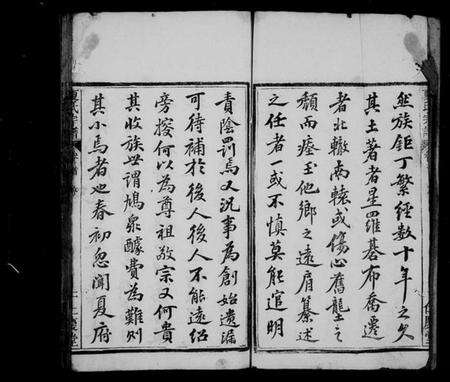 然族鉅丁繁經數十年之久
其土著者星羅碁布喬遷
者北轍南轅或傷心舊壟之
頹而瘞玉他鄉之遠肩纂述
之任者一或不慎莫能追明
責陰罰焉又況事為創始遺漏
可待補於後人後人不能遠紹
旁搜何以為尊祖敬宗又何貴
其收族世謂鳩眾醵費為難則
其小焉者也春初忽聞夏府